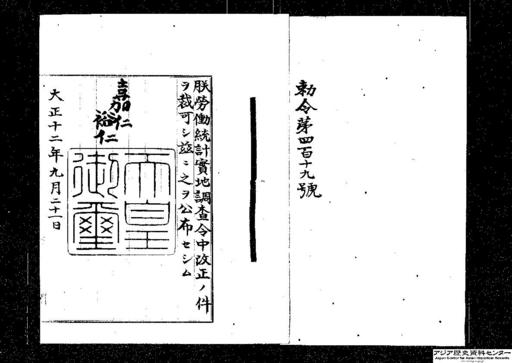 勅令第四百十九號
朕勞働統計實地調査令中改正ノ件
ヲ裁可シ茲ニ之ヲ公布セシム
嘉仁
裕仁
天皇
御璽
大正十二年九月二十一日
アジア歴史資料センター
Japan Center for Asian Historical Records